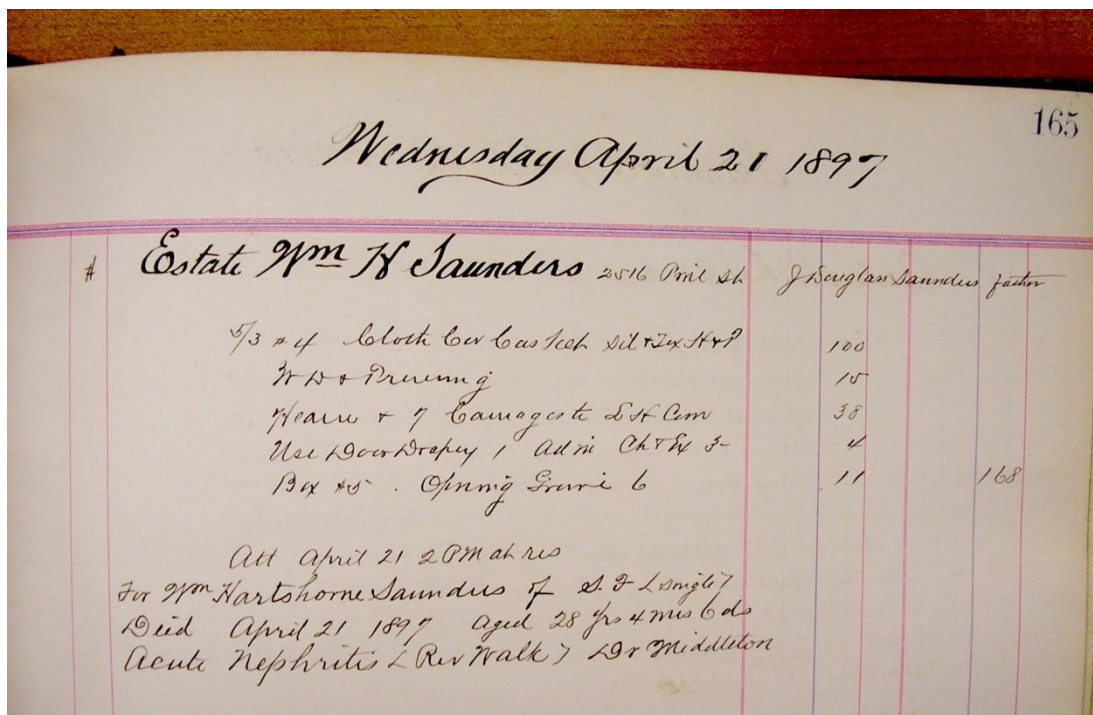 165
Wednesday April 21 1897
# Estate Wm H Saunders 2516 Pine St J Douglan Saunders father
5/3 #4 Cloth Cov Casket Sil & Tex H & P 100
W D & Preserving 15
Hearse & 7 Carriages to L H Cem 38
Use Door Drapery 1 Adv in Ch & Ex 3- 4
Box #5 . Opening Grave 6 11 168
Att April 21 2 PM at res
For Wm Hartshorne Saunders of S. F (single)
Died April 21 1897 Aged 28 yrs 4 mos 6 ds
Acute Nephritis (Rev Walk) Dr Middleton